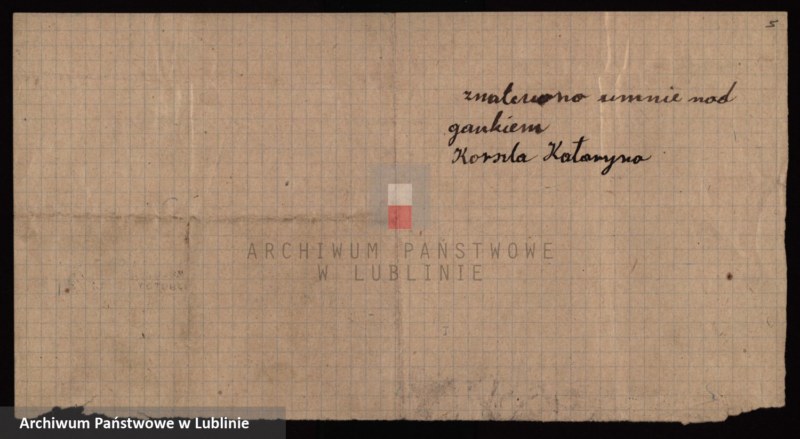 5
znalezono umnie nad
gankiem
Korszla Katarzyna
ARCHIWUM PAŃSTWOWE
W LUBLINIE
Archiwum Państwowe w Lublinie